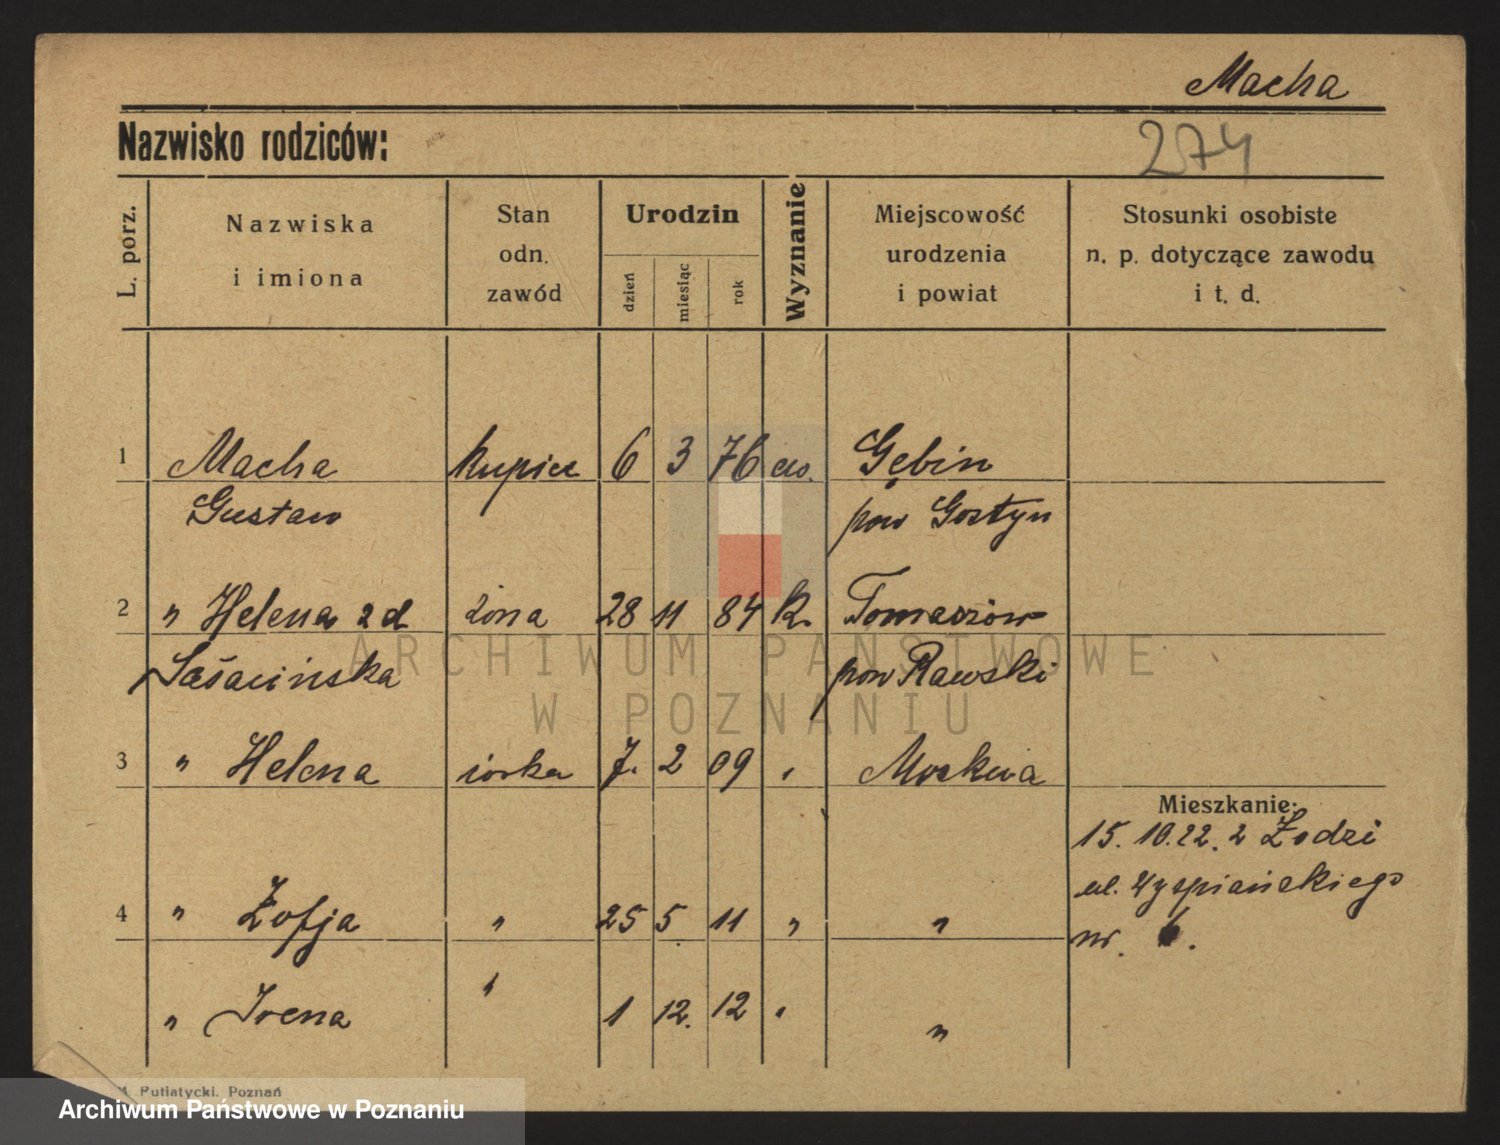 Macha
Nazwisko rodziców:
274
L. porz.
Nazwiska
i imiona
Stan
odn.
zawód
Urodzin
dzień
miesiąc
rok
Wyznanie
Miejscowość
urodzenia
i powiat
Stosunki osobiste
n. p. dotyczące zawodu
i t. d.
1 Macha kupiec 6 3 76 ew. Gębin
Gustaw pow Gostyn
2 " Helena zd żona 28 11 84 k. Tomaszów
pow Rawski
3 " Helena córka 7. 2 09 " Moskwa
Mieszkanie:
15. 10. 22. z Łodzi
ul. Wyspiańskiego
4 " Zofja " 25 5 11 " "
nr. 6.
" Irena " 1 12. 12 " "
ARCHIWUM PAŃSTWOWE
W POZNANIU
M. Putiatycki. Poznań
Archiwum Państwowe w Poznaniu